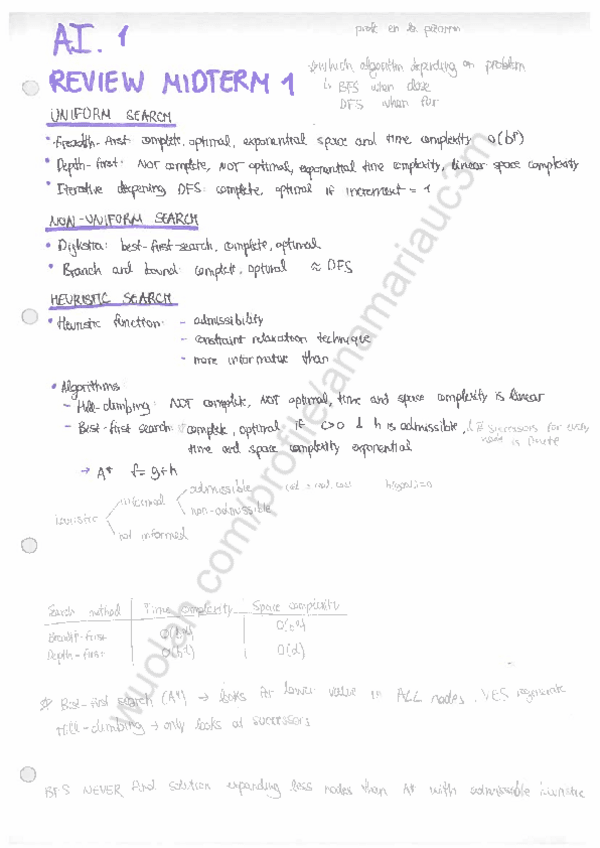 A.I. 1
REVIEW MIDTERM 1
prof en la pizarra
which algorithm depending on problem
BFS when close
DFS when far
UNIFORM SEARCH
• Breadth-first: complete, optimal, exponential space and time complexity O(b^d)
• Depth-first: NOT complete, NOT optimal, exponential time complexity, linear space complexity
• Iterative deepening DFS: complete, optimal if increment = 1
NON-UNIFORM SEARCH
• Dijkstra: best-first-search, complete, optimal
• Branch and bound: complete, optimal ≈ DFS
HEURISTIC SEARCH
• Heuristic function: - admissibility
- constraint relaxation technique
- more informative than
• Algorithms
- Hill-climbing: NOT complete, NOT optimal, time and space complexity is linear
- Best-first search: complete, optimal if c>0 & h is admissible, & # successors for every
node is finite
time and space complexity exponential
→ A* f=g+h
heuristic
informed
admissible
non-admissible
not informed
Search method | Time complexity | Space complexity
Breadth-first O(b^d) O(b^d)
Depth-first O(b^d) O(d)
* Best-first search (A*) → looks for lower value in ALL nodes. YES regenerate
Hill-climbing → only looks at successors
BFS NEVER find solution expanding less nodes than A* with admissible heuristic
wuolah.com/profile/anamariauc3m